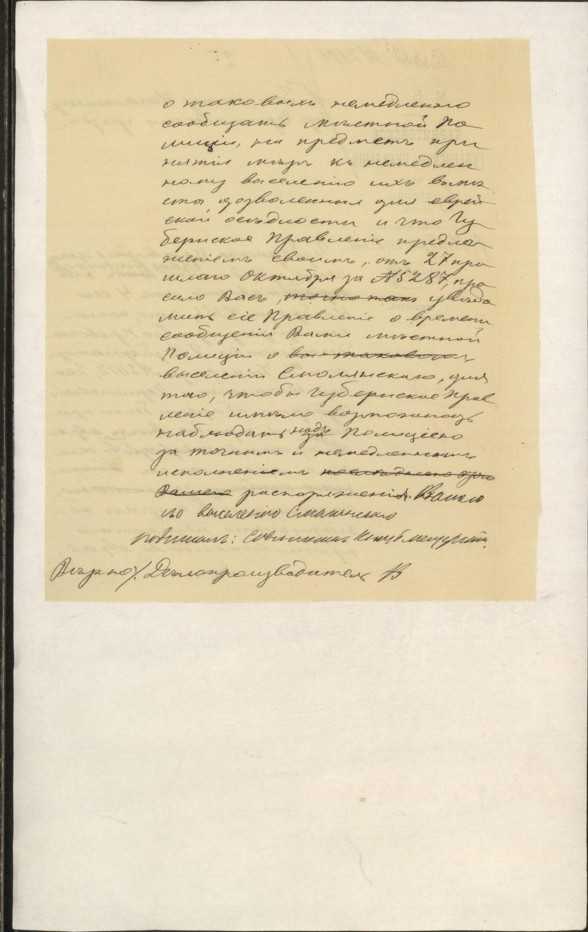 о таковыхъ немедленно
сообщать мѣстной По
лиціи, на предметъ при
нятія мѣръ къ немедлен
ному выселенію ихъ въ мѣ
ста дозволенныя для еврей
ской осѣдлости и что Гу
бернское Правленіе предло
женіемъ своимъ, отъ 27 про
шлаго Октября за № 5287, про
сило Васъ, точно также увѣдо
мить сіе Правленіе о времени
сообщенія Вами мѣстной
Полиціи о
выселеніи Смолянскаго, для
того, чтобы Губернское Прав
леніе имѣло возможность
наблюдать надъ Полиціею
за точнымъ и немедленнымъ
исполненіемъ
распоряженія Вашего
по выселенію Смолянскаго
подписалъ: Совѣтникъ
Вѣрно: Дѣлопроизводитель